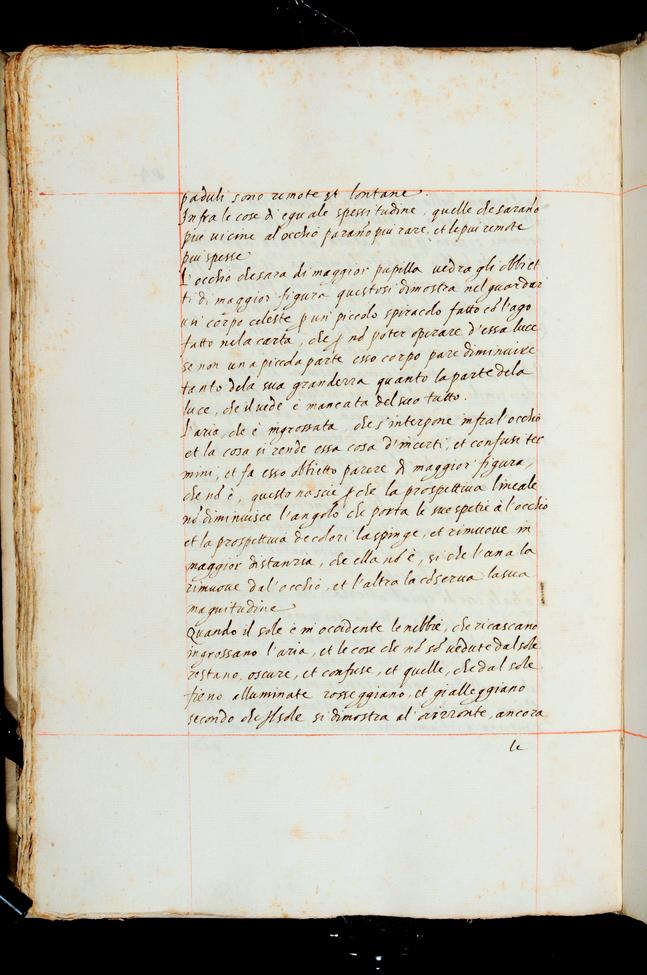 paduli sono remote et lontane
Infra le cose di equale spessitudine, quelle che sarano
piu vicine al'occhio parano piu rare, et le piu remote
piu spesse
L'occhio che sara di maggior pupilla vedra gli obbiet
ti di maggior figura questo si dimostra nel guardar
un' corpo celeste p un' piccolo spiracolo fatto cō l'ago
fatto nela carta, che p nō poter opirare d'essa luce
se non una picola parte esso corpo pare diminuire
tanto dela sua granderra quanto la parte dela
luce, che il vede è mancata del suo tutto.
L'aria, che è ingrossata, che s'interpone infra l'occhio
et la cosa si rende essa cosa d'incerti, et confusi ter
mini, et fa esso obbietto parere di maggior figura,
che nō è, questo nascie p che la prospettiva lineale
nō diminuisce l'angolo che porta le sue spetie à l'occhio
et la prospettiva de colori la spinge, et rimuove in
maggior distanzia, che ella nō è, si che l'una la
rimuove dal'occhio, et l'altra la cōserva la sua
magnitudine
Quando il sole è in occidente le nebbie, che ricascano
ingrossano l'aria, et le cose che nō sō vedute dal sole
restano, oscure, et confuse, et quelle, che dal sole
fieno alluminate rosseggiano, et gialleggiano
secondo che il sole si dimostra al'orizzonte, ancora
le